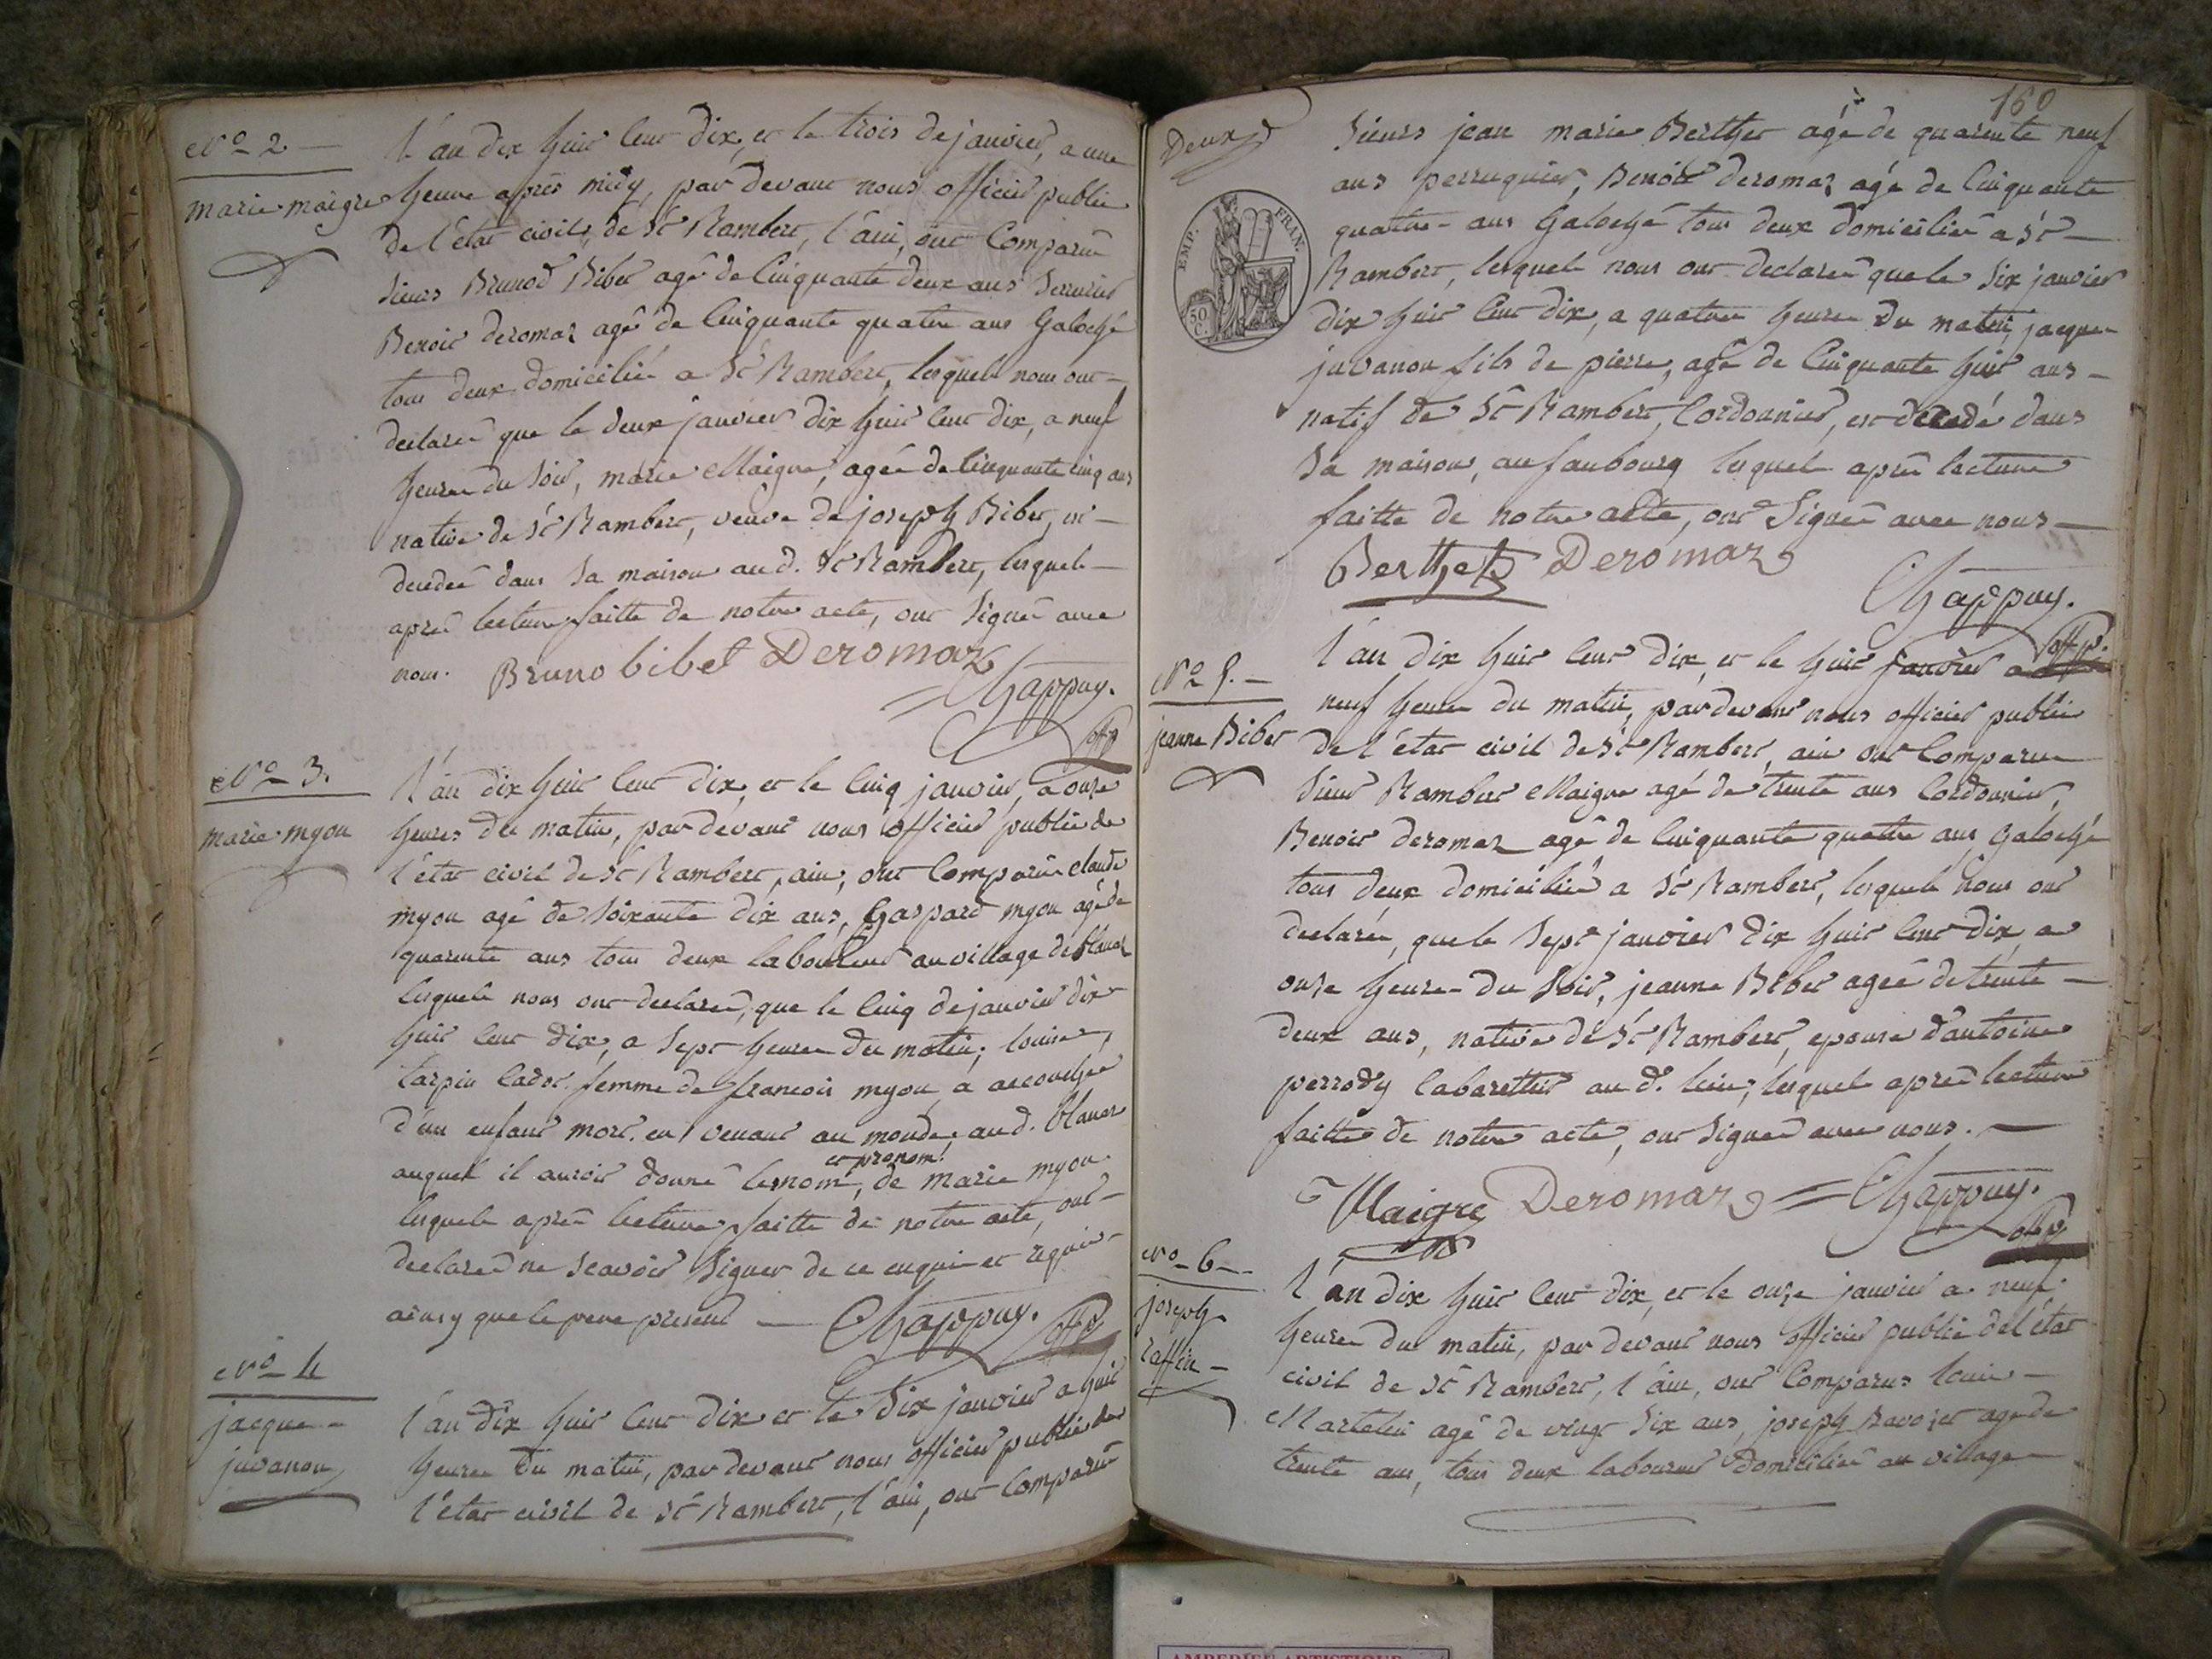 N.o 2
marie maigre
L'an dix huit cent dix, et le trois de janvier, a une
heure après midy, par devant nous officier public
de l'état civil, de St Rambert, l'ain, ont Comparu
Sieurs Brunod Bibet agé de Cinquante deux ans Serrurier
Benoit deromaz agé de Cinquante quatre ans Galoché
tous deux domiciliés a St Rambert, lesquels nous ont
declarés que le deux janvier dix huit cent dix, a neuf
heures du Soir, marie Maigre, agée de Cinquante cinq ans
native de St Rambert, veuve de joseph Bibet, est
decedée dans Sa maison aud. St Rambert, lesquels
après lecture faitte de notre acte, ont Signés avec
nous. Bruno bibet Deromaz
Chappuy.
offp
N.o 3.
marie myon
L'an dix huit cent dix, et le Cinq janvier, a onze
heures du matin, par devant nous officier public de
l'état civil de St Rambert, ain, ont Comparus claude
myon agé de Soixante dix ans, Gaspard myon agé de
quarente ans tous deux laboureurs au village de blanaz
lesquels nous ont declarés, que le Cinq de janvier dix
huit cent dix, a Sept heures du matin, louise
tarpin Cador femme de francois myon, a accouchée
d'un enfant mort en venant au monde, aud. blanaz
et pronom
auquel il auroit donné le nom, de marie myon
lesquels après lecture faitte de notre acte, ont
declarés ne Scavoir Signer de ce enquis et requis
ainsy que le pere present — Chappuy. offp
N.o 4
jacque
juvanon
L'an dix huit cent dix et le Six janvier a huit
heures du matin, par devant nous officier public de
l'état civil de St Rambert, l'ain, ont Comparus
160
Deux
EMP. FRAN.
50 C.
Sieurs jean marie Berthet agé de quarente neuf
ans perruquier, Benoit deromaz agé de Cinquante
quatre ans Galoché tous deux domiciliés a St
Rambert, lesquels nous ont declarés que le Six janvier
dix huit Cent dix, a quatre heures du matin, jacque
juvanon fils de pierre, agé de Cinquante huit ans
natif de St Rambert, Cordonnier, est décedé dans
Sa maison, au faubourg lesquels après lecture
faitte de notre acte, ont Signés avec nous
Berthet Deromaz
Chappuy.
offp.
N.o 5.
jeanne Bibet
L'an dix huit cent dix, et le huit janvier a
neuf heures du matin, par devant nous officier public
de l'état civil de St Rambert, ain ont Comparus
Sieur Rambert Maigre agé de trente ans Cordonnier,
Benoit deromaz agé de Cinquante quatre ans Galoché
tous deux domiciliés a St Rambert, lesquels nous ont
declarés, que le Sept janvier dix huit Cent dix, a
onze heures du Soir, jeanne Bibet agée de trente
deux ans, native de St Rambert, epouse d'antoine
perrody Cabarettier au d. lieu, lesquels après lecture
faitte de notre acte, ont Signés avec nous.
Maigre Deromaz Chappuy.
offp
N.o 6
joseph
raffin
L'an dix huit cent dix, et le onze janvier a neuf
heures du matin, par devant nous officier public de l'état
civil de St Rambert, l'ain, ont Comparus louis
Martelin agé de vingt Six ans, joseph Ravozet agé de
trente ans, tous deux laboureurs domiciliés au village
AMBERIEU ARTISTIQUE